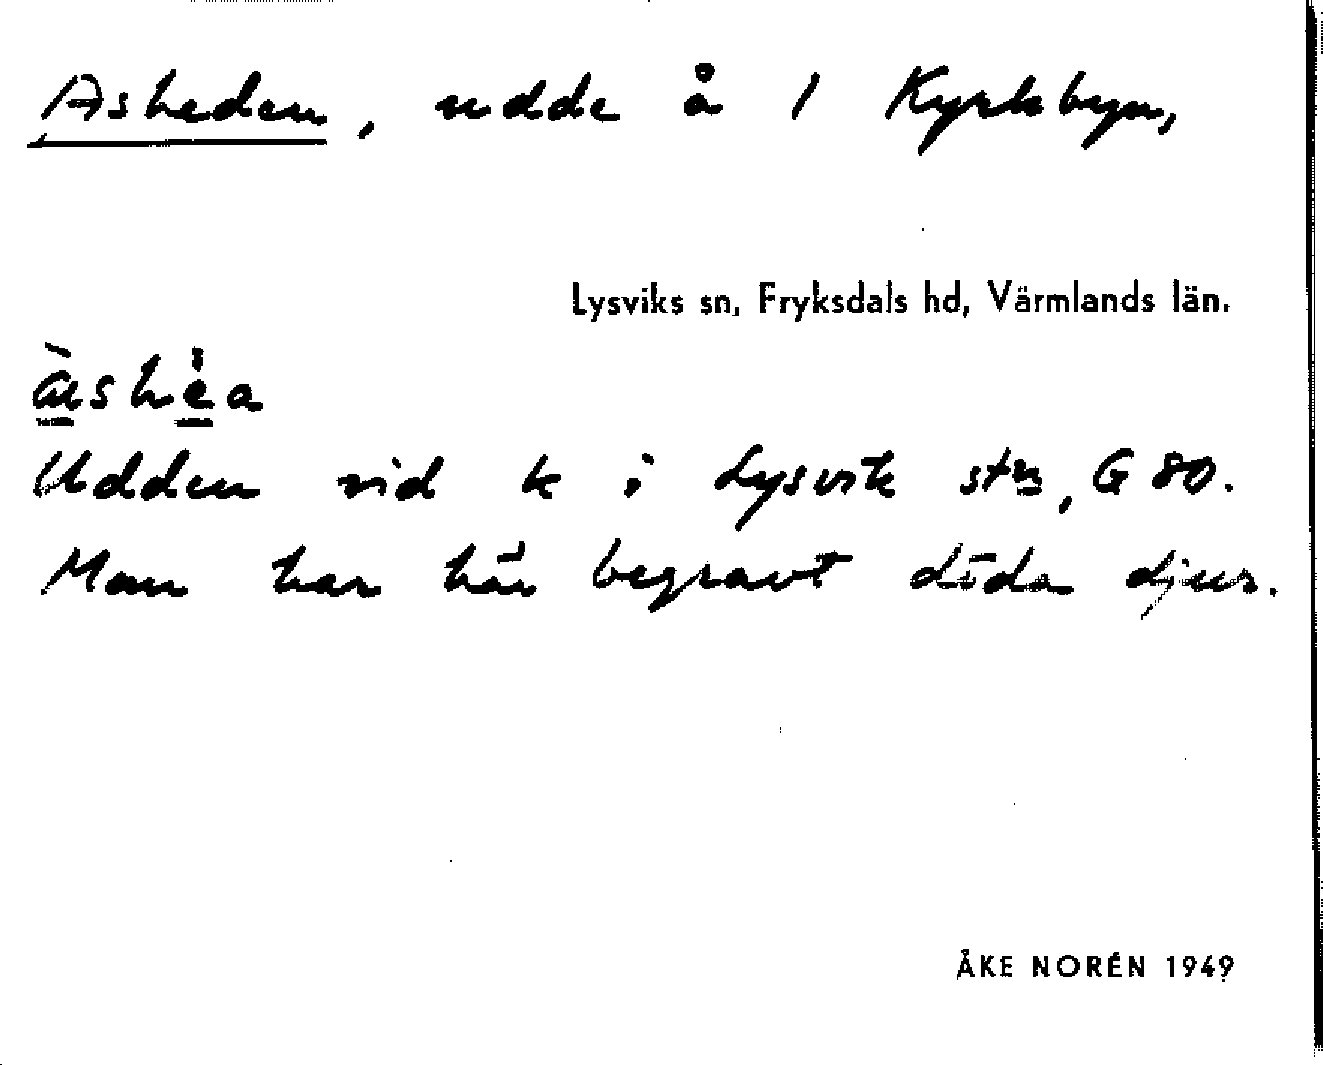 Asheden, udde å 1 Kyrkbyn,
Lysviks sn, Fryksdals hd, Värmlands län.
àsh
Udden vid k i Lysvik stn, G 80.
Man har här begravt döda djur.
ÅKE NORÉN 1949